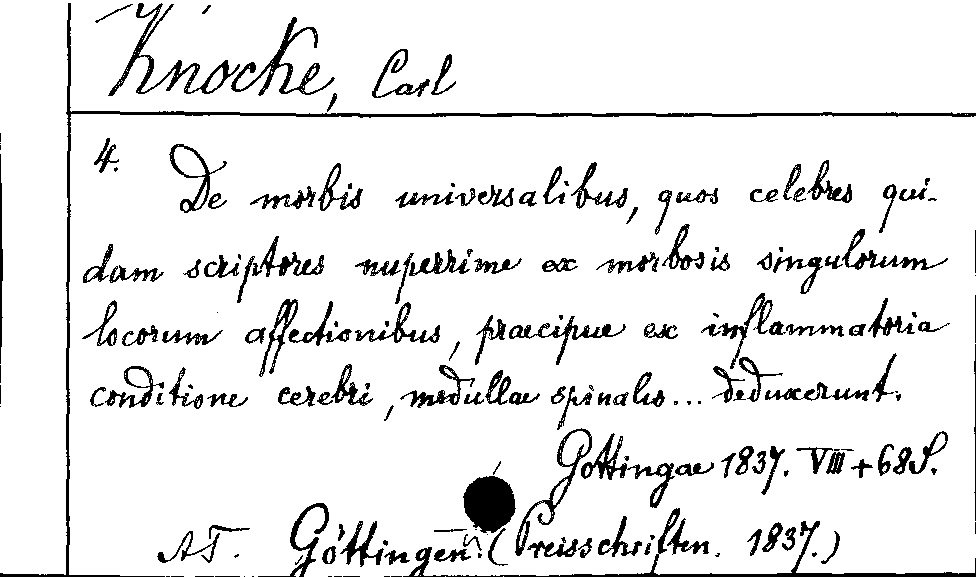 Knocke, Carl
4.
De morbis universalibus, quos celebres qui-
dam scriptores nuperrime ex morbosis singulorum
locorum affectionibus, praecipue ex inflammatoria
conditione cerebri, medullae spinalis... deduxerunt.
Gottingae 1837. VIII + 68 S.
AT. Göttingen. (Preisschriften. 1837.)